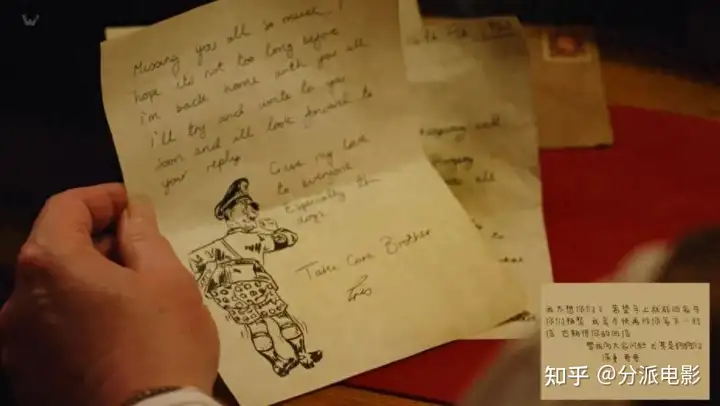 Missing you all so much. I
hope its not too long before
i'm back home with you all
i'll try and write to you
soon and i'll look forward to
your reply
Give my love
to everyone
Especially the
dogs.
Take Care Brother
我太想你们了 希望马上就能回家与
你们相聚 我会尽快再给你写下一封
信 也期待你的回信
替我向大家问好 尤其是狗狗们
保重 哥哥
知乎 @分派电影